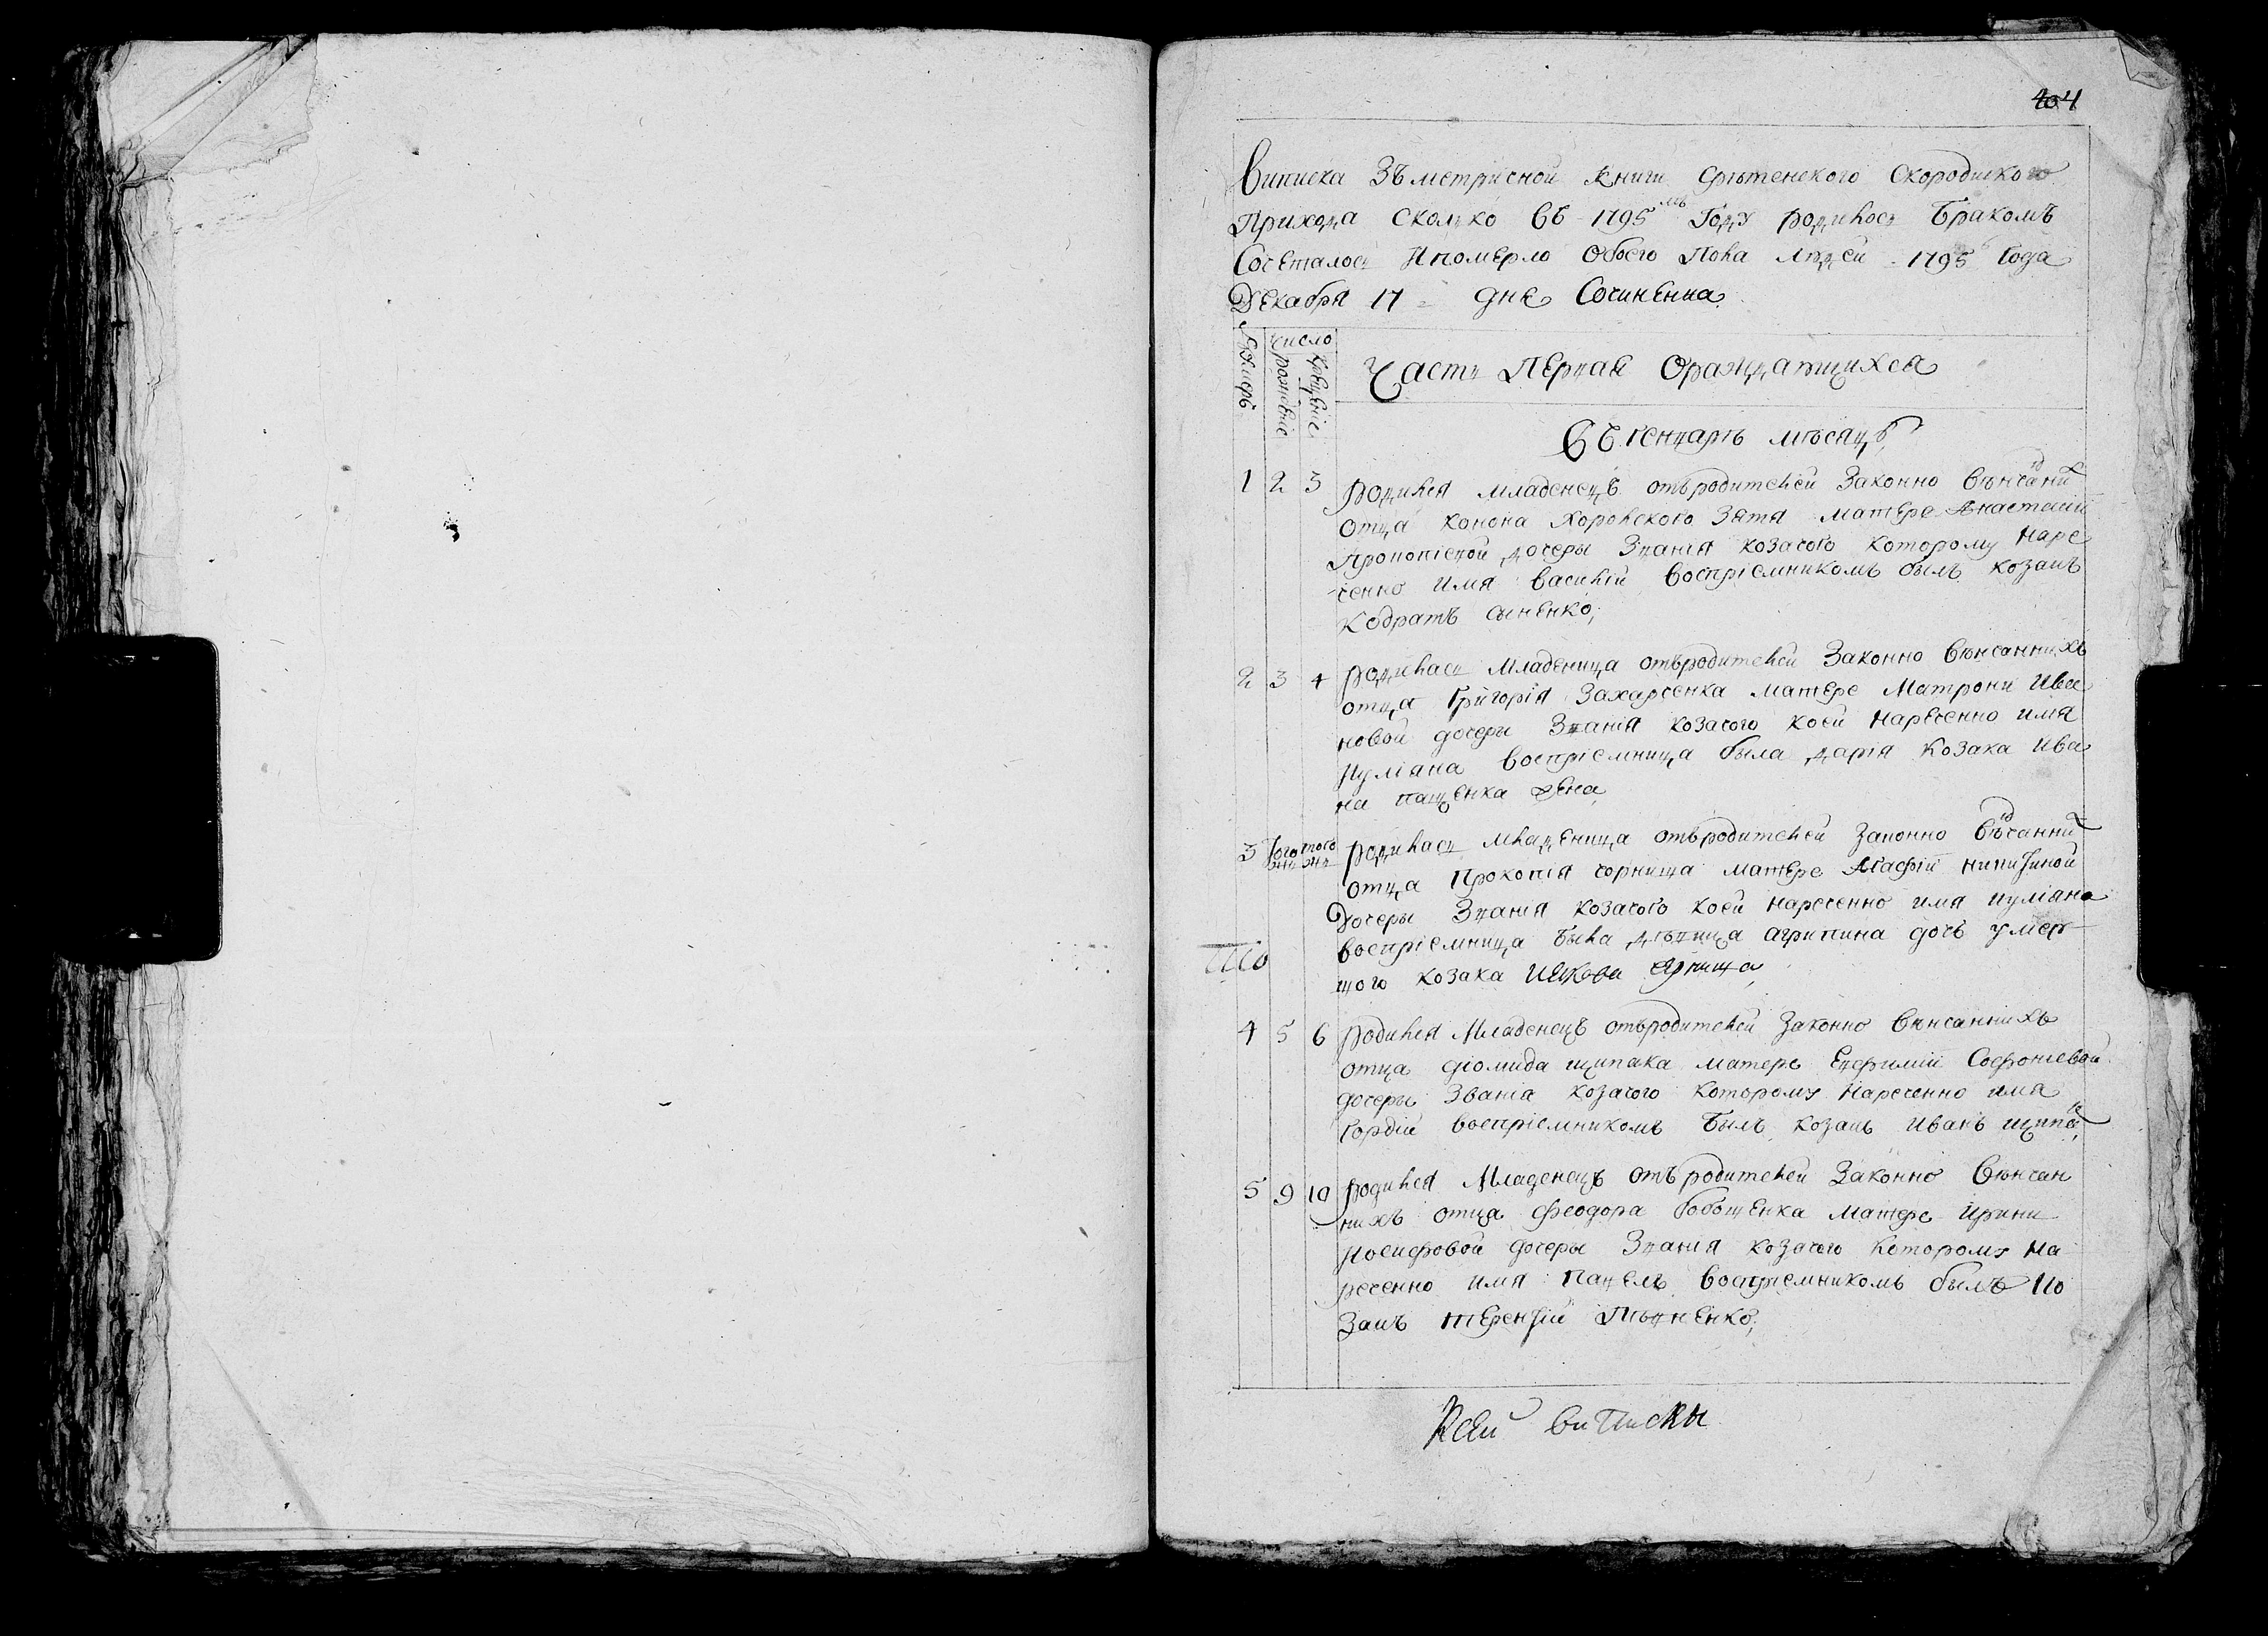 404
Виписка Зъ метрисной книги Срѣтенского Скородиского
Прихода Сколко въ 1795мъ Году родилось Бракомъ
Сочеталось И померло Обоего Пола людей 1795 Года
Декабря 17 дня Сочиненна
Число
рожденіе
крещеніе
Часть Первая О раждающихся
Въ генварѣ мѣсяцѣ
1 2 3 родился младенецъ отъ родителей Законно вѣнчаних
отца Конона Хоролского Зятя матере Анастасіи
Прокопіевой дочеры Званія козачого которому наре
ченно имя василій воспріемникомъ былъ козакъ
Кодратъ Сыненко,
2 3 4 родилась младеница отъ родителей Законно вѣнчаннихъ
отца Григорія Захарченка матере Матрони Ива
новой дочеры Званія козачого коей нареченно имя
Иуліана воспріемница была дарія козака Ива
на пащенка жена
3 того жъ того жъ родилась младеница отъ родителей законно вѣнчанних
отца Прокопія чорниша матере Агафіи
Дочеры Званія козачого коей нареченно имя иуліана
воспріемница была дѣвица агрипина дочь умер
шого козака
4 5 6 родился Младенецъ отъ родителей Законно вѣнчаннихъ
отца діомида щипака матере Евфиміи Софоніевой
дочеры Званія козачого которому Нареченно имя
Гордій воспріемникомъ Былъ козакъ Иванъ щипак
5 9 10 родился Младенецъ отъ родителей Законно вѣнчан
нихъ отца феодора бобошенка матере Ирини
Иосифовой дочеры Званія козачого которому на
реченно имя Павелъ воспріемникомъ былъ ко
закъ терентій
Всей виписки